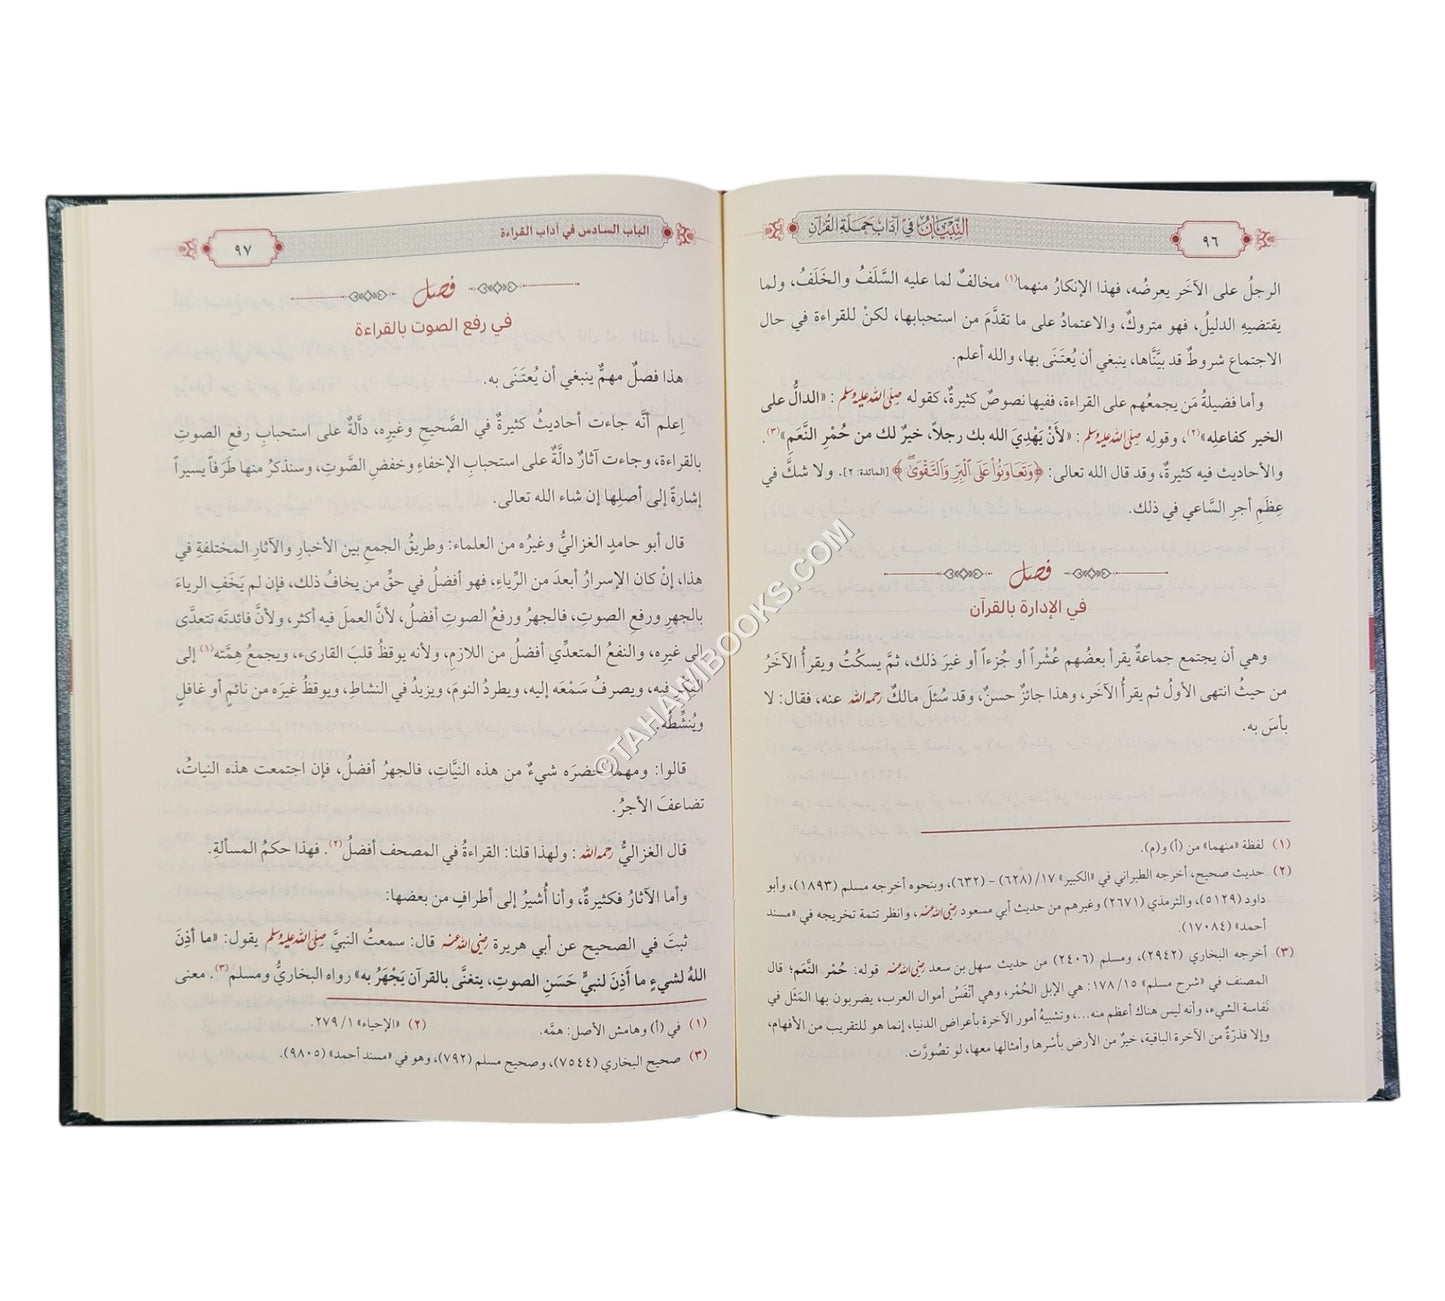 ٩٦
التِّبْيَانُ في آدَابِ حَمَلَةِ القُرآنِ
الرجلُ على الآخَر يعرضُه، فهذا الإنكارُ منهما(١) مخالفٌ لما عليه السَّلَفُ والخَلَفُ، ولما
يقتضيهِ الدليلُ، فهو متروكٌ، والاعتمادُ على ما تقدَّمَ من استحبابها، لكنْ للقراءة في حال
الاجتماع شروطٌ قد بيَّنَّاها، ينبغي أن يُعتَنَى بها، والله أعلم.
وأما فضيلةُ مَن يجمعُهم على القراءة، ففيها نصوصٌ كثيرةٌ، كقوله صلى الله عليه وسلم: «الدالُّ على
الخير كفاعلِه»(٢)، وقوله صلى الله عليه وسلم: «لأَنْ يَهْدِيَ الله بك رجلاً، خيرٌ لك من حُمْرِ النَّعَمِ»(٣).
والأحاديث فيه كثيرةٌ، وقد قال الله تعالى: ﴿وَتَعَاوَنُوا۟ عَلَى ٱلْبِرِّ وَٱلتَّقْوَىٰ﴾ [المائدة: ٢]. ولا شكَّ في
عِظَمِ أجرِ السَّاعي في ذلك.
فصل
في الإدارة بالقرآن
وهي أن يجتمع جماعةٌ يقرأ بعضُهم عُشْراً أو جُزءاً أو غيرَ ذلك، ثمَّ يسكُتُ ويقرأُ الآخَرُ
من حيثُ انتهى الأولُ ثم يقرأُ الآخَر، وهذا جائزٌ حسنٌ، وقد سُئلَ مالكٌ رحمه الله عنه، فقال: لا
بأسَ به.
(١) لفظة «منهما» من (أ) و(م).
(٢) حديث صحيح، أخرجه الطبراني في «الكبير» ١٧/ (٦٢٨) – (٦٣٢)، وبنحوه أخرجه مسلم (١٨٩٣)، وأبو
داود (٥١٢٩)، والترمذي (٢٦٧١) وغيرهم من حديث أبي مسعود رضي الله عنه، وانظر تتمة تخريجه في «مسند
أحمد» (١٧٠٨٤).
(٣) أخرجه البخاري (٢٩٤٢)، ومسلم (٢٤٠٦) من حديث سهل بن سعد رضي الله عنه قوله: حُمْر النَّعَم؛ قال
المصنف في «شرح مسلم» ١٧٨/١٥: هي الإبل الحُمْر، وهي أنْفَسُ أموال العرب، يضربون بها المَثَل في
نَفاسة الشيء، وأنه ليس هناك أعظم منه...، وتشبيهُ أمور الآخرة بأعراض الدنيا، إنما هو للتقريب من الأفهام،
وإلا فذرّةٌ من الآخرة الباقية، خيرٌ من الأرض بأسْرها وأمثالها معها، لو تصُوِّرَت.
الباب السادس في آداب القراءة
٩٧
فصل
في رفع الصوت بالقراءة
هذا فصلٌ مهمٌّ ينبغي أن يُعتَنَى به.
اِعلم أنَّه جاءت أحاديثُ كثيرةٌ في الصَّحيحِ وغيرِه، دالَّةٌ على استحبابِ رفعِ الصوتِ
بالقراءة، وجاءت آثارٌ دالَّةٌ على استحبابِ الإخفاءِ وخفضِ الصَّوتِ، وسنذكرُ منها طَرَفاً يسيراً
إشارةً إلى أصلِها إن شاء الله تعالى.
قال أبو حامدٍ الغزاليُّ وغيرُه من العلماء: وطريقُ الجمعِ بين الأخبارِ والآثارِ المختلفةِ في
هذا، إنْ كان الإسرارُ أبعدَ من الرِّياءِ، فهو أفضلُ في حقِّ من يخافُ ذلك، فإن لم يَخَفِ الرياءَ
بالجهرِ ورفعِ الصوتِ، فالجهرُ ورفعُ الصوتِ أفضلُ، لأنَّ العملَ فيه أكثر، ولأنَّ فائدتَه تتعدَّى
إلى غيرِه، والنفعُ المتعدِّي أفضلُ من اللازمِ، ولأنه يوقظُ قلبَ القارىء، ويجمعُ هِمَّته(١) إلى
الفكر فيه، ويصرفُ سَمْعَه إليه، ويطردُ النومَ، ويزيدُ في النشاطِ، ويوقظُ غيرَه من نائمٍ أو غافلٍ
ويُنشِّطُه.
قالوا: ومهما حضرَه شيءٌ من هذه النيَّاتِ، فالجهرُ أفضلُ، فإن اجتمعت هذه النياتُ،
تضاعفَ الأجرُ.
قال الغزاليُّ رحمه الله: ولهذا قلنا: القراءةُ في المصحف أفضلُ(٢). فهذا حكمُ المسألةِ.
وأما الآثارُ فكثيرةٌ، وأنا أُشيرُ إلى أطرافٍ من بعضها:
ثبتَ في الصحيح عن أبي هريرة رضي الله عنه قال: سمعتُ النبيَّ صلى الله عليه وسلم يقول: «ما أذِنَ
اللهُ لشيءٍ ما أَذِنَ لنبيٍّ حَسَنِ الصوتِ، يتغنَّى بالقرآن يَجْهَرُ به» رواه البخاريُّ ومسلم(٣). معنى
(١) في (أ) وهامش الأصل: همَّه.
(٢) «الإحياء» ٢٧٩/١.
(٣) صحيح البخاري (٧٥٤٤)، وصحيح مسلم (٧٩٢)، وهو في «مسند أحمد» (٩٨٠٥).
©TAHAWIBOOKS.COM